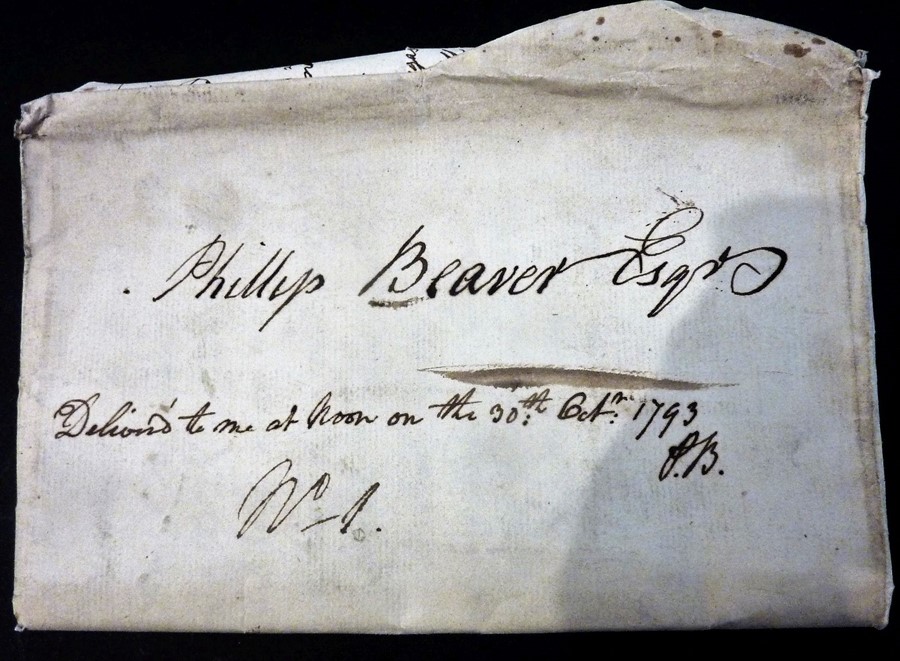 Phillip Beaver Esqr.
Deliver'd to me at Noon on the 30th. Octr. 1793
P.B.
No-1.